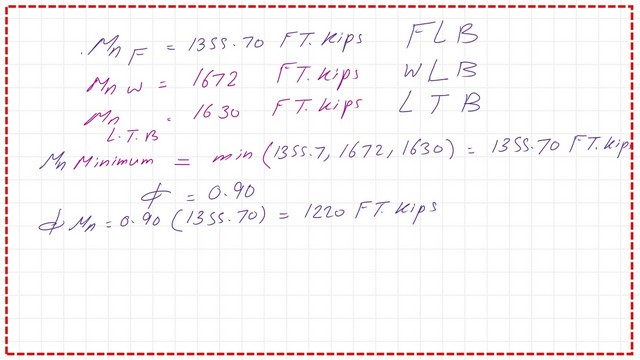 Mn F = 1355.70 FT.Kips FLB
Mn W = 1672 FT.Kips WLB
Mn L.T.B = 1630 FT.Kips LTB
Mn Minimum = min(1355.7, 1672, 1630) = 1355.70 FT.Kip
ϕ = 0.90
ϕ Mn = 0.90 (1355.70) = 1220 FT.Kips